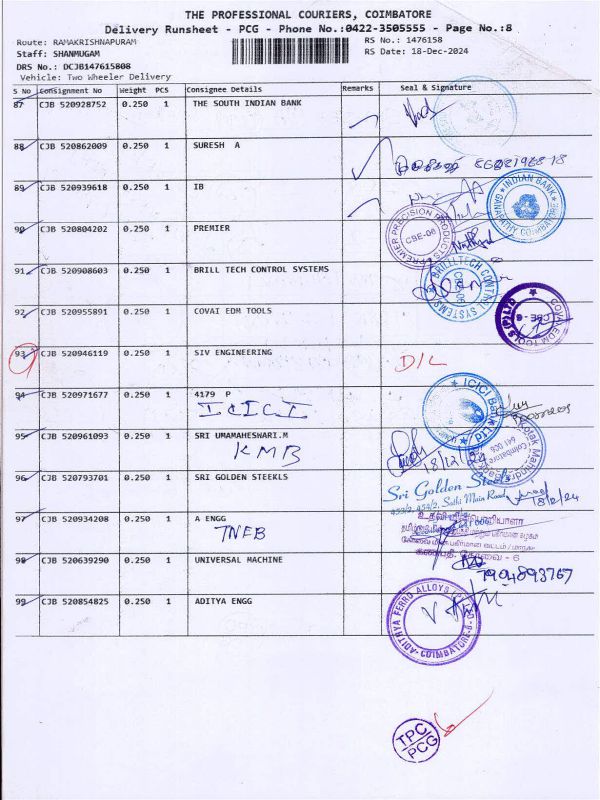 THE PROFESSIONAL COURIERS, COIMBATORE
Delivery Runsheet - PCG - Phone No.:0422-3505555 - Page No.:8
Route: RAMAKRISHNAPURAM
RS No.: 1476158
Staff: SHANMUGAM
RS Date: 18-Dec-2024
DRS No.: DCJB147615808
Vehicle: Two Wheeler Delivery
S No Consignment No Weight PCS Consignee Details Remarks Seal & Signature
87 CJB 520928752 0.250 1 THE SOUTH INDIAN BANK
88 CJB 520862009 0.250 1 SURESH A
89 CJB 520939618 0.250 1 IB
INDIAN BANK
GANAPATHY, COIMBATORE
90 CJB 520804202 0.250 1 PREMIER
PREMIER PRECISION PRODUCTS
CBE-06
91 CJB 520908603 0.250 1 BRILL TECH CONTROL SYSTEMS
BRILLTECH CONTROL SYSTEMS
92 CJB 520955891 0.250 1 COVAI EDM TOOLS
COVAI EDM TOOLS (P) LTD
CBE - 6
93 CJB 520946119 0.250 1 SIV ENGINEERING
D/L
94 CJB 520971677 0.250 1 4179 P
ICICI
ICICI Bank Ltd
95 CJB 520961093 0.250 1 SRI UMAMAHESWARI.M
KMB
18/12/24
Kotak Mahindra Bank
Coimbatore
641 006
96 CJB 520793701 0.250 1 SRI GOLDEN STEEKLS
Sri Golden Steels
453/2, 454/2, Sathi Main Road
97 CJB 520934208 0.250 1 A ENGG
TNEB
உதவி மின் பொறியாளர்
கணபதி, கோவை - 6
98 CJB 520639290 0.250 1 UNIVERSAL MACHINE
7904893767
99 CJB 520854825 0.250 1 ADITYA ENGG
ADITHYA FERRO ALLOYS
COIMBATORE-6
TPC
PCG